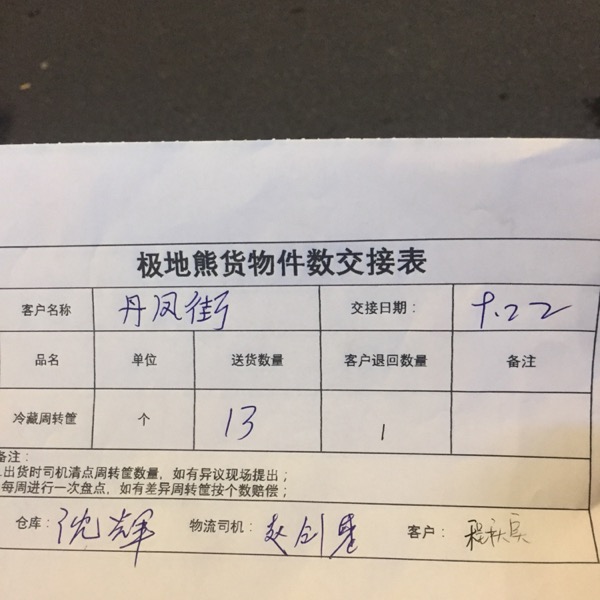 极地熊货物件数交接表
客户名称 丹凤街 交接日期： 9.22
品名 单位 送货数量 客户退回数量 备注
冷藏周转筐 个 13 1
备注：
出货时司机清点周转筐数量，如有异议现场提出；
每周进行一次盘点，如有差异周转筐按个数赔偿；
仓库：沈辉 物流司机： 客户：